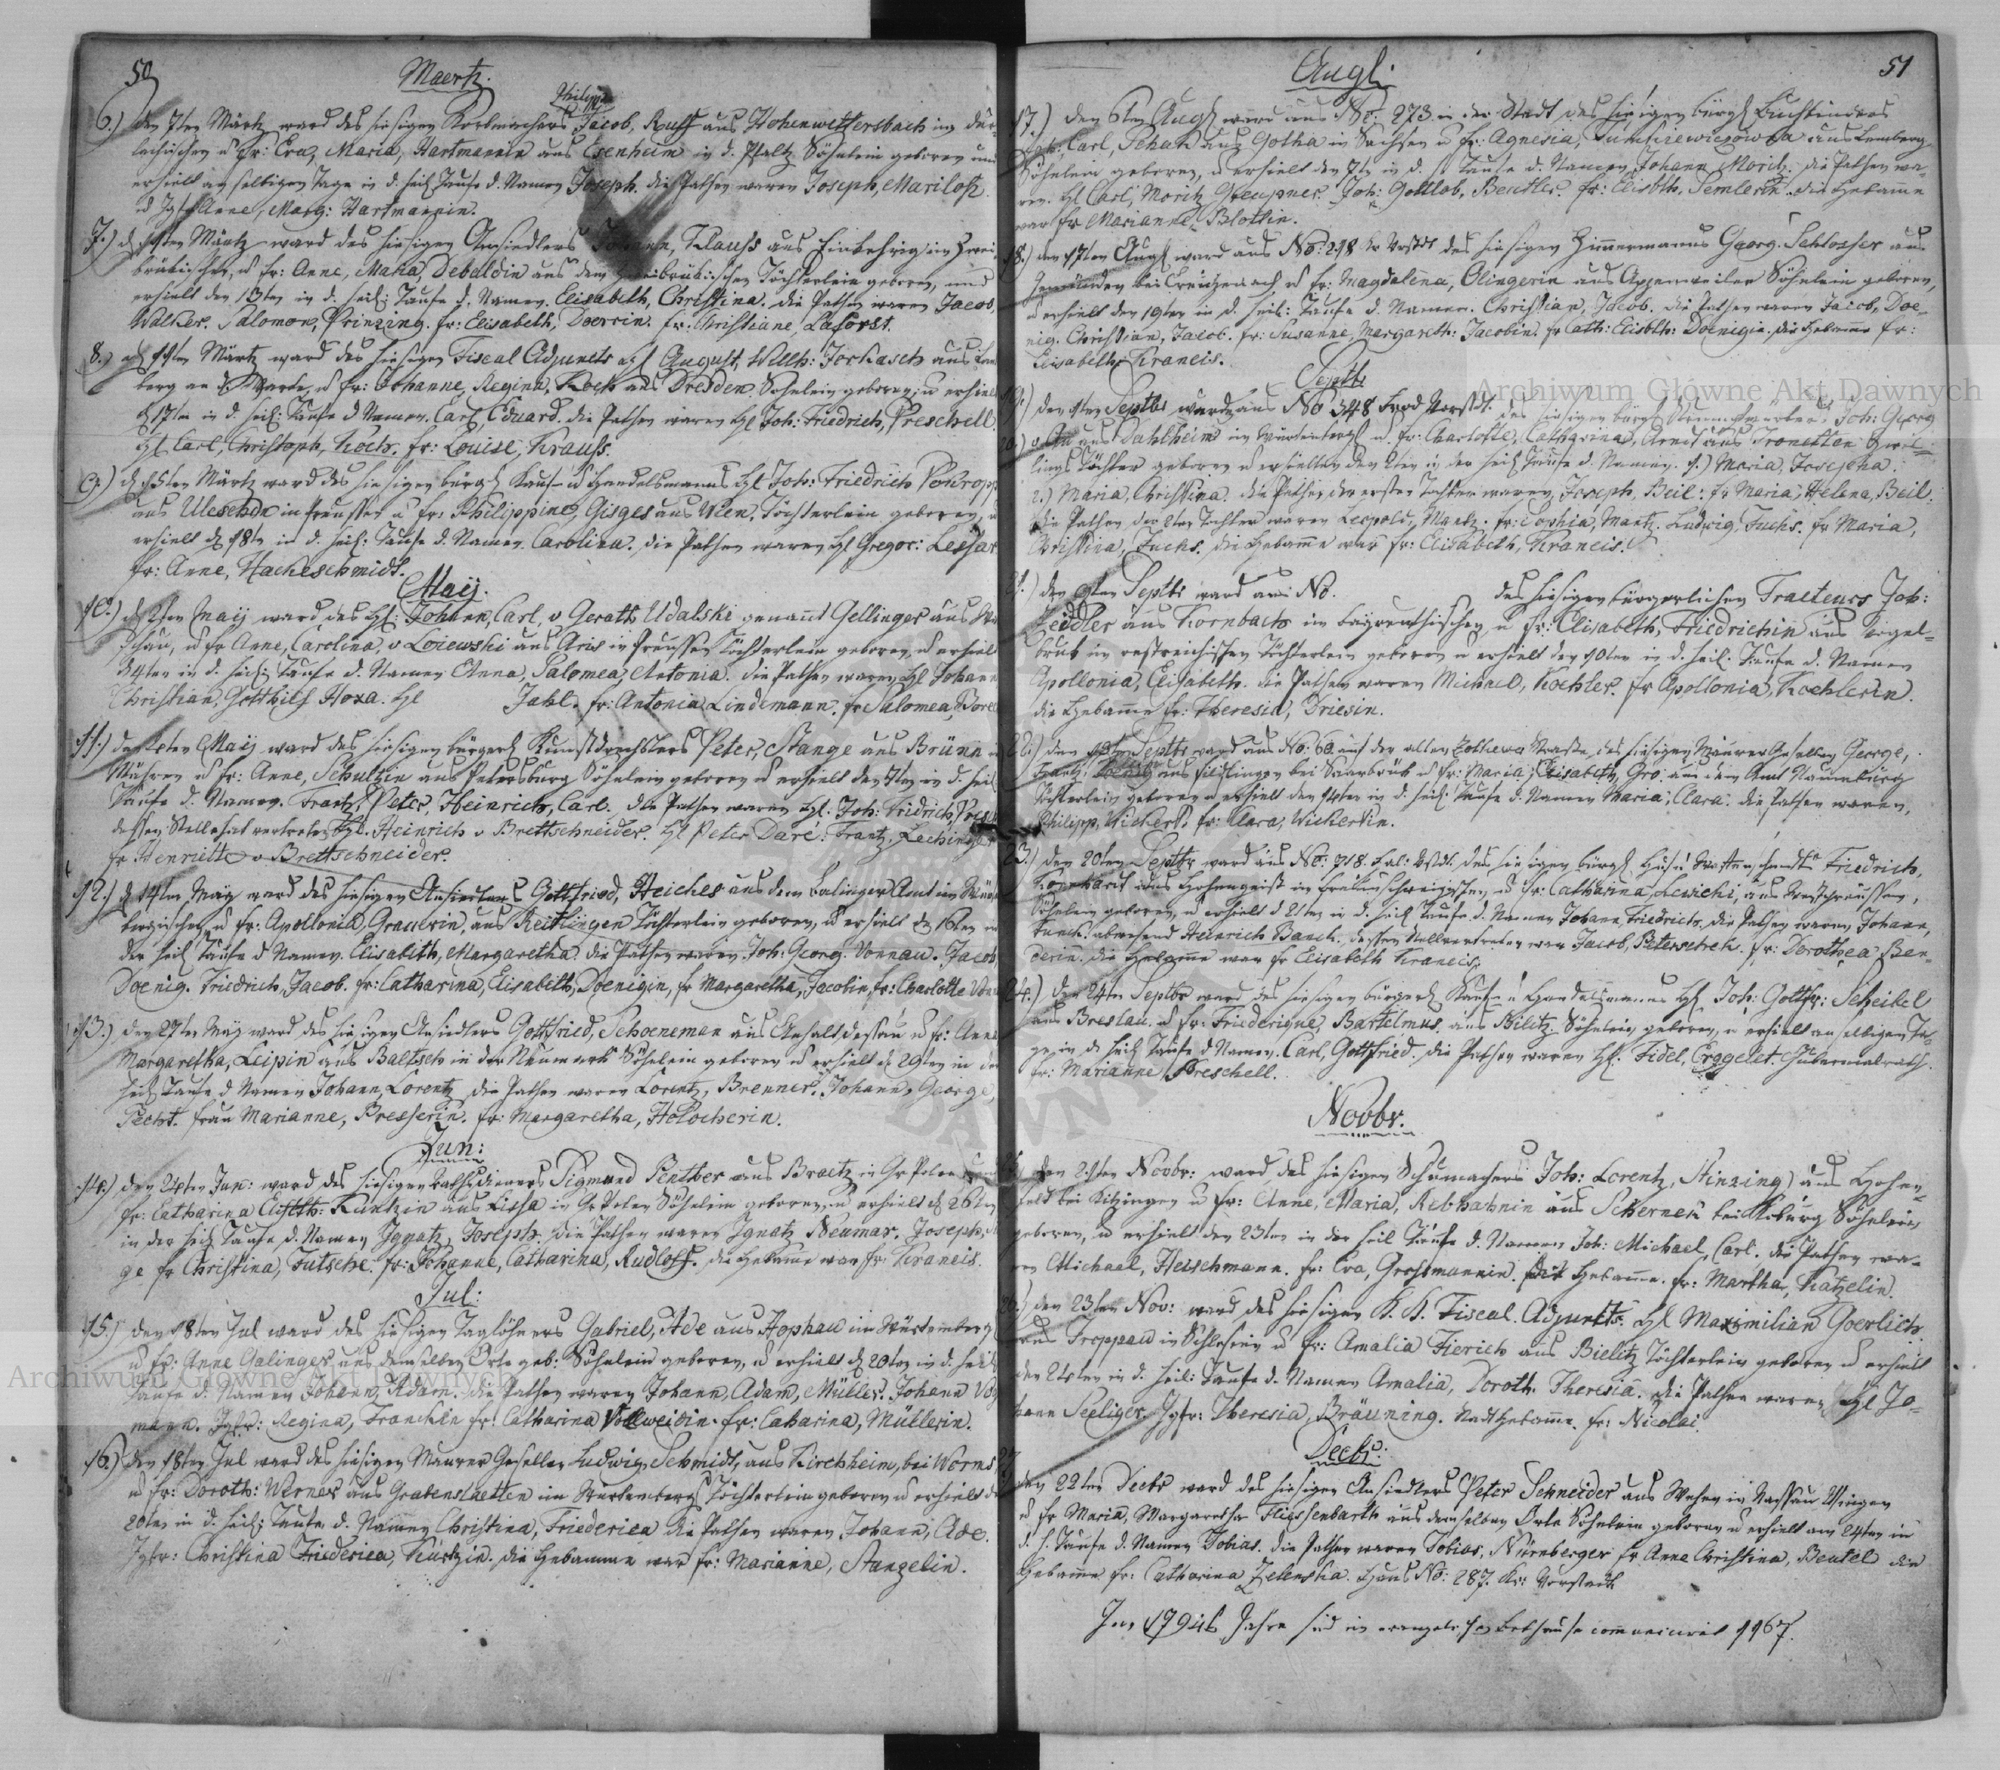 50
Maertz.
Philipp
6.) den 7ten Märtz ward des hiesigen Korbmachers Jacob, Ruff aus Hohenwettersbach im Dur-
lachischen u fr: Eva, Maria, Hartmannin aus Esenheim in d. Pfaltz Söhnlein geboren und
erhielt an selbigen Tage in d. heil Taufe d. Namen Joseph. die Pathen waren Joseph, Marilof
u Jgf Anne, Marg: Hartmannin.
7.) Märtz ward des hiesigen Ansiedlers Johann, Klauss aus Einkehrig im Zwei-
brükischen, u fr: Anne, Maria, Debaldin aus dem Zweibrükischen Töchterlein geboren, und
erhielt den 13ten in d. heil: Taufe d. Namen Elisabeth, Christina. die Pathen waren Jacob,
Walker. Salomon, Prinzing. fr: Elisabeth, Doerrin. fr: Christiane, Laforst.
8.) Märtz ward des hiesigen Fiscal Adjuncts August, Wilh: Jorkasch aus
berg an d. Warte, u fr: Johanne, Regina, Koch aus Dresden Söhnlein geboren, u erhielt
d 17ten in d. heil: Taufe d Namen. Carl, Eduard. die Pathen waren Joh: Friedrich, Preschell.
Carl, Christoph, Koch. fr: Louise, Krauss.
9.) d 15ten Märtz ward des hiesigen bürgl Kauf u Handelsmanns Joh: Friedrich
aus in Preussen u fr: Philippine, Gisges aus Wien, Töchterlein geboren, u
erhielt d 18ten in d. heil: Taufe d. Namen Carolina. die Pathen waren Gregor:
fr: Anne, Hackeschmidt.
Maij.
10.) Maij ward des Johann, Carl, v Gerath Udalski genannt Gellinger aus
schau, u fr Anne, Carolina, v Loiewski aus Aris in Preussen Töchterlein geboren, u erhielt
in d. heil: Taufe d. Namen Anna, Salomea, Antonia. die Pathen waren Johann
Christian, Gotthilf Hoxa. Jahl. fr: Antonia Lindemann. fr Salomea,
11.) Maij ward des hiesigen bürgerl Kunstdrechslers Peter, Stange aus Brünn
Mähren u fr: Anne, Schulzin aus Petersburg Söhnlein geboren u erhielt den in d. heil
Taufe d. Namen. Frantz, Peter, Heinrich, Carl. die Pathen waren Joh: Fridrich
dessen Stelle hat vertreten Heinrich v Brettschneider. Peter Daré: Frantz, Lechinger
fr Henriette v Brettschneider.
12.) d 14ten May ward des hiesigen Ansiedlers Gottfried, Heiches aus dem Balinger Amt im
bergischen, u fr: Apollonia, Grauerin, aus Reitlingen Töchterlein geboren, u erhielt d 16ten in
der heil Taufe d Namen. Elisabeth, Margaretha. die Pathen waren Joh: Georg. Vonnau. Jacob,
Doenig. Friedrich, Jacob. fr: Catharina, Elisabeth, Doenigin, fr Margaretha, Jacobin, fr: Charlotte
13.) den 27ten May ward des hiesigen Ansiedlers Gottfried, Schoeneman aus Anhalt Dessau u fr: Anne
Margaretha, Leipin aus Baltsch in der Neumark Söhnlein geboren u erhielt d 29ten in der
heil Taufe d Namen Johann, Lorentz, die Pathen waren Lorentz, Brenner. Johann, George,
Pecht. frau Marianne, Bresserin. fr: Margaretha, Holocherin.
Jun:
14.) den 24ten Jun: ward des hiesigen Rathsdieners Sigmund Penther aus Braetz in Gr Polen und
fr: Catharina Elisbth: Kuntzin aus Lissa in Gr Polen Söhnlein geboren, u erhielt d 26ten
in der heil Taufe d. Namen Ignatz, Joseph. die Pathen waren Ignatz Neumar. Joseph,
ge fr Christina, Jutsche. fr: Johanne, Catharina, Rudloff. die Hebamme war fr: Kraneis.
Jul:
15.) den 18ten Jul ward des hiesigen Taglöhners Gabriel, Ade aus Hophau im Würtemberg
u fr: Anne Galinger aus demselben Orte geb: Söhnlein geboren, u erhielt d 20ten in d. heil
Taufe d: Namen Johann, Adam. die Pathen waren Johann, Adam, Müller. Johann
mann. Jgfr: Regina, Franckin fr: Catharina Vollweidin. fr: Catharina, Müllerin.
16.) den 18ten Jul ward des hiesigen Maurer Gesellen Ludwig, Schmidt, aus Kirchheim, bei Worms
u fr: Doroth: Werner aus Grabenstaetten im Würtemberg Töchterlein geboren u erhielt d
20ten in d. heil: Taufe d. Namen Christina, Friederica die Pathen waren Johann, Ade.
Jgfr: Christina Friederica, Kurtzin. die Hebamme war fr: Marianne, Stangelin.
51
Augl:
17.) den 6ten Augl ward aus No. 273 in der Stadt des hiesigen bürgl Buchbinders
Carl, Schad aus Gotha in Sachsen u fr: Agnesia, aus Lemberg
Söhnlein geboren, u erhielt den 7ten in d. h Taufe d. Namen Johann Moritz. die Pathen wa-
ren. Carl, Moritz Greupner. Joh: Gottlob, Beutler. fr: Elisbth, Semlerin. die Hebamme
war fr Marianne Blottin.
18.) den 17ten Augl ward aus No: 298 Kr Vorstdt des hiesigen Zimmermanns Georg. Schlosser aus
Gemünden bei Creutzenach u fr: Magdalena, Olingerin aus Appenweiler Söhnlein geboren,
u erhielt den 19ten in d. heil: Taufe d. Namen. Christian, Jacob. die Pathen waren Jacob, Doe-
nig. Christian, Jacob. fr: Susanne, Margareth: Jacobin. fr Cath: Elisbth: Doenigin. die Hebamme fr:
Elisabeth Kraneis.
Septb:
19.) den Septbr ward aus No 348 Vorstdt. des hiesigen bürgl Joh: Georg
20.) aus Dahlheim im Würtenbergl u. fr: Charlotte, Catharina, Arnd aus Zwil-
lings Töchter geboren u erhielten den in der heil Taufe d. Namen. 1.) Maria, Josepha.
2.) Maria, Christina. die Pathen der ersten Tochter waren, Joseph, Beil: fr Maria, Helena, Beil.
die Pathen der 2ten Tochter waren Leopold, Mantz. fr: Sophia, Mantz. Ludwig Fuchs. fr Maria,
Christina, Fuchs. die Hebamme war fr: Elisabeth, Kraneis.
21.) den 9ten Septbr ward aus No. des hiesigen bürgerlichen Traiteurs Joh:
Zeidler aus Kornbach im Bayreuthischen, u fr: Elisabeth, Friedrichin aus
bruk im oestreichischen Töchterlein geboren u erhielt den 10ten in d. heil. Taufe d. Namen
Apollonia, Elisabeth. die Pathen waren Michael, Koehler. fr Apollonia, Koehlerin.
die Hebamme fr: Theresia, Griesin.
22.) den Septbr ward aus No: 60 auf der alten Zolkiewa Strasse, des hiesigen Maurer Gesellen George,
Frantz, aus bei Saarbrük u fr: Maria, Elisabeth, Gro: aus dem Amt Naumburg
Töchterlein geboren u erhielt den 14ten in d. heil: Taufe d. Namen Maria, Clara. die Pathen waren,
Philipp, Wickert. fr: Clara, Wickertin.
23.) den 20ten Septbr ward aus No: 318. des hiesigen bürgl Friedrich,
aus Hohengeiß im Braunschweigischen, u fr: Catharina aus Westpreussen,
Söhnlein geboren, u erhielt d 21ten in d. heil Taufe d. Namen Johann, Friedrich. die Pathen waren Johann,
abwesend Heinrich Banck. dessen Stellvertreter war Jacob, Peterschek. fr: Dorothea Ben-
derin. die Hebamme war fr Elisabeth Kraneis.
24.) den 24ten Septbr ward des hiesigen bürgerl Kauf u Handelsmanns Joh: Gottfr: Scheikel
aus Breslau, u fr: Friederique, Bartelmus, aus Bilitz Söhnlein geboren, u erhielt an selbigen Ta-
ge in d. heil Taufe d Namen. Carl, Gottfried. die Pathen waren Fidel, Erggelet. Gubernialrath.
fr: Marianne Preschell.
Novbr.
den 21ten Novbr: ward des hiesigen Schumachers Joh: Lorentz, Hinzing aus Hohen-
feld bei Kitzingen u fr: Anne, Maria, Rebhahnin aus Scherneck bei Koburg Söhnlein
geboren, u erhielt den 23ten in der heil Taufe d. Namen Joh: Michael, Carl. die Pathen wa-
ren Michael, Heischmann. fr: Eva, Großmannin. die Hebamme. fr: Martha, Katzelin.
26.) den 23ten Nov: ward des hiesigen K. K. Fiscal Adjuncts. Maximilian Goerlich
aus Troppau in Schlesien u fr: Amalia Fierich aus Bielitz Töchterlein geboren u erhielt
den in d. heil: Taufe d. Namen Amalia, Doroth. Theresia. die Pathen waren Jo-
hann Seeliger. Jgfr: Theresia, Bräuning. Stadthebamme. fr: Nicolai.
Decb:
den 22ten Decbr ward des hiesigen Ansiedlers Peter Schneider aus Wehen in Nassau Usingen
u fr Maria, Margaretha Fliessenbarth aus demselben Orte Söhnlein geboren u erhielt am 24ten in
d. h. Taufe d. Namen Tobias. die Pathen waren Tobias, Nürnberger fr Anne Christina, Beutel die
Hebamme fr: Catharina Zelenska. Haus No: 287. Kr: Vorstadt
Im 1794ten Jahre sind im evangelischen Bethause communicirt 1167.
Archiwum Główne Akt Dawnych
Archiwum Główne Akt Dawnych